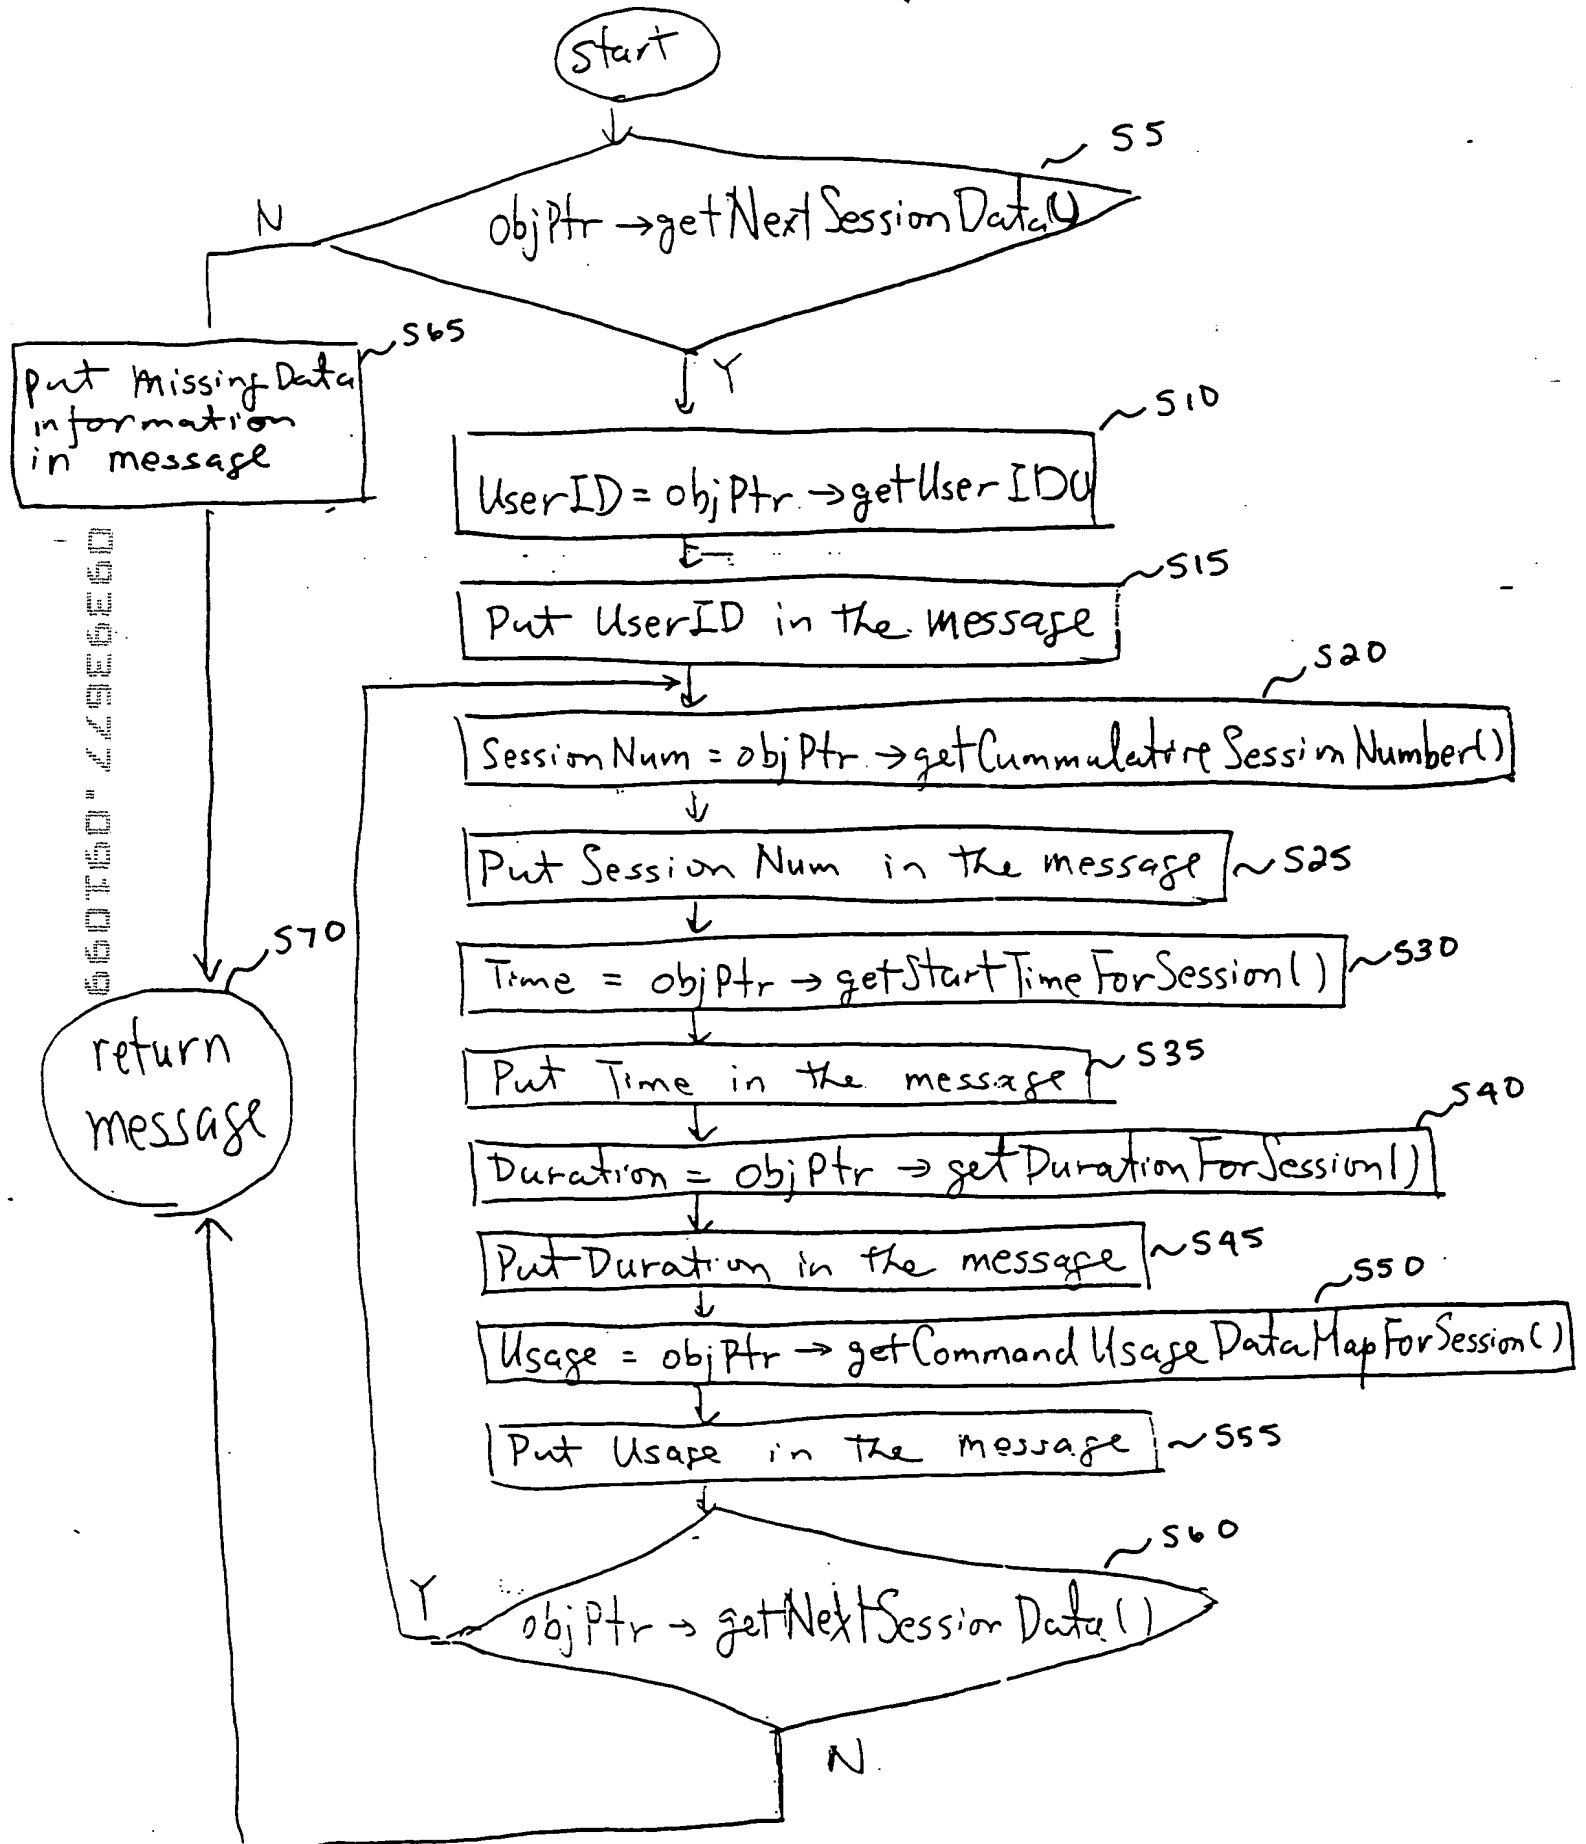 start
S5
objPtr→getNextSessionData()
N
Y
S65
put missing Data
information
in message
S10
UserID = objPtr→getUserID()
S15
Put UserID in the message
S20
SessionNum = objPtr→getCummulativeSessionNumber()
Put Session Num in the message
S25
Time = objPtr→getStartTimeForSession()
S30
Put Time in the message
S35
Duration = objPtr→getDurationForSession()
S40
Put Duration in the message
S45
Usage = objPtr→getCommandUsageDataMapForSession()
S50
Put Usage in the message
S55
objPtr→getNextSessionData()
S60
Y
N
S70
return
message
09393677.091099